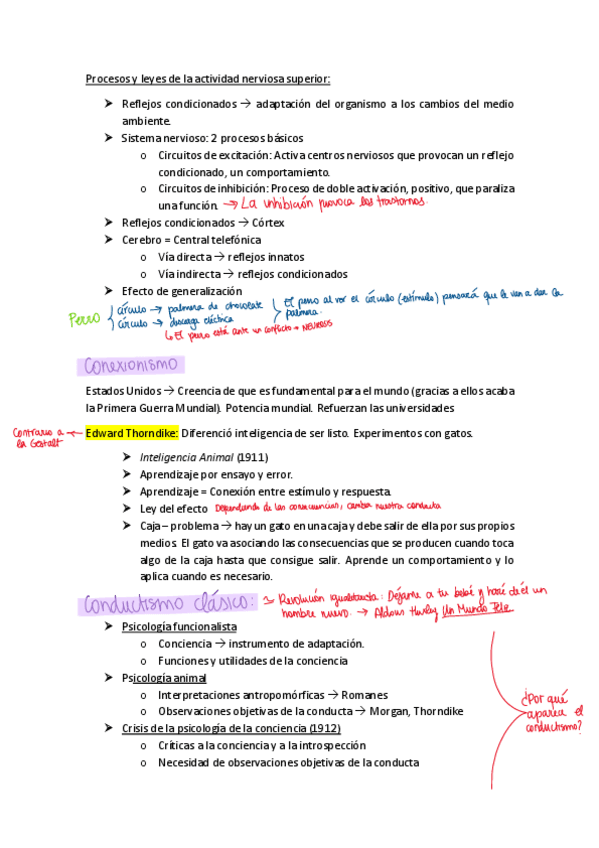 Procesos y leyes de la actividad nerviosa superior:
➢ Reflejos condicionados → adaptación del organismo a los cambios del medio
ambiente.
➢ Sistema nervioso: 2 procesos básicos
o Circuitos de excitación: Activa centros nerviosos que provocan un reflejo
condicionado, un comportamiento.
o Circuitos de inhibición: Proceso de doble activación, positivo, que paraliza
una función. → La inhibición provoca los trastornos.
➢ Reflejos condicionados → Córtex
➢ Cerebro = Central telefónica
o Vía directa → reflejos innatos
o Vía indirecta → reflejos condicionados
➢ Efecto de generalización
Perro
círculo → palmera de chocolate
círculo → descarga eléctrica
El perro al ver el círculo (estímulo) pensará que le van a dar la
palmera.
↳ El perro está ante un conflicto → NEUROSIS
Conexionismo
Estados Unidos → Creencia de que es fundamental para el mundo (gracias a ellos acaba
la Primera Guerra Mundial). Potencia mundial. Refuerzan las universidades
Contrario a ←
la Gestalt
Edward Thorndike: Diferenció inteligencia de ser listo. Experimentos con gatos.
➢ Inteligencia Animal (1911)
➢ Aprendizaje por ensayo y error.
➢ Aprendizaje = Conexión entre estímulo y respuesta.
➢ Ley del efecto Dependiendo de las consecuencias, cambia nuestra conducta
➢ Caja – problema → hay un gato en una caja y debe salir de ella por sus propios
medios. El gato va asociando las consecuencias que se producen cuando toca
algo de la caja hasta que consigue salir. Aprende un comportamiento y lo
aplica cuando es necesario.
Conductismo clásico: Revolución igualitarista: Déjame a tu bebé y haré de él un
hombre nuevo. → Aldous Huxley Un Mundo Feliz.
➢ Psicología funcionalista
o Conciencia → instrumento de adaptación.
o Funciones y utilidades de la conciencia
➢ Psicología animal
o Interpretaciones antropomórficas → Romanes
o Observaciones objetivas de la conducta → Morgan, Thorndike
➢ Crisis de la psicología de la conciencia (1912)
o Críticas a la conciencia y a la introspección
o Necesidad de observaciones objetivas de la conducta
¿Por qué
aparece el
conductismo?